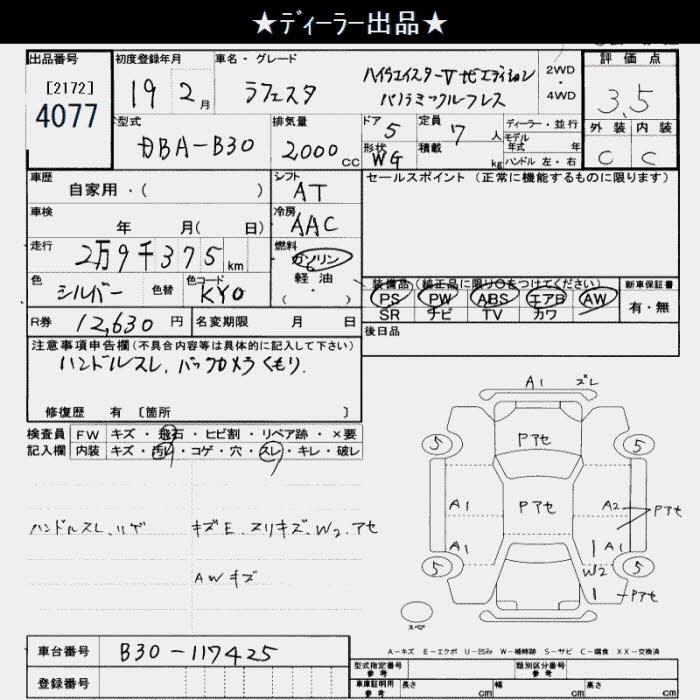 ★ディーラー出品★
出品番号 初度登録年月 車名・グレード 2WD・4WD 評価点
[2172]
4077
19年2月 ラフェスタ ハイウェイスターV ナビエディション
パノラミックルーフレス
3.5
型式 排気量 ドア 定員 ディーラー・並行
DBA-B30 2000cc 5 7人 モデル年式 年
形状 積載 kg ハンドル 左・右
WG
外装 内装
C C
車歴 シフト セールスポイント (正常に機能するものに限ります)
自家用・( ) AT
車検 冷房
年 月( 日) AAC
走行 燃料
2万9千375km ガソリン
軽油
( ・ )
色 色替 色コード
シルバー KY0
装備品 (純正品に限り○をつけてください) 新車保証書
PS PW ABS エアB AW 有・無
SR ナビ TV カワ
R券 12,630円 名変期限 月 日 後日品
注意事項申告欄(不具合内容等は具体的に記入して下さい)
ハンドルスレ、バックカメラくもり.
修復歴 有 〔箇所 〕
検査員 FW キズ・飛石・ヒビ割・リペア跡・×要
記入欄 内装 キズ・汚レ・コゲ・穴・スレ・キレ・破レ
ハンドルスレ、リヤ キズE、ヌリキズ、W2、アセ
AWキズ
A1 ズレ
5 Pアセ 5
A1 Pアセ A2 Pアセ
A1 A1
5 W2 5
Pアセ
スペア
A-キズ E-エクボ U-凹み W-補修跡 S-サビ C-腐食 XX-交換済
車台番号 B30-117425
型式指定番号 参考 類別区分番号 参考
登録番号
車庫証明用 参考 長さ cm 幅 cm 高さ cm